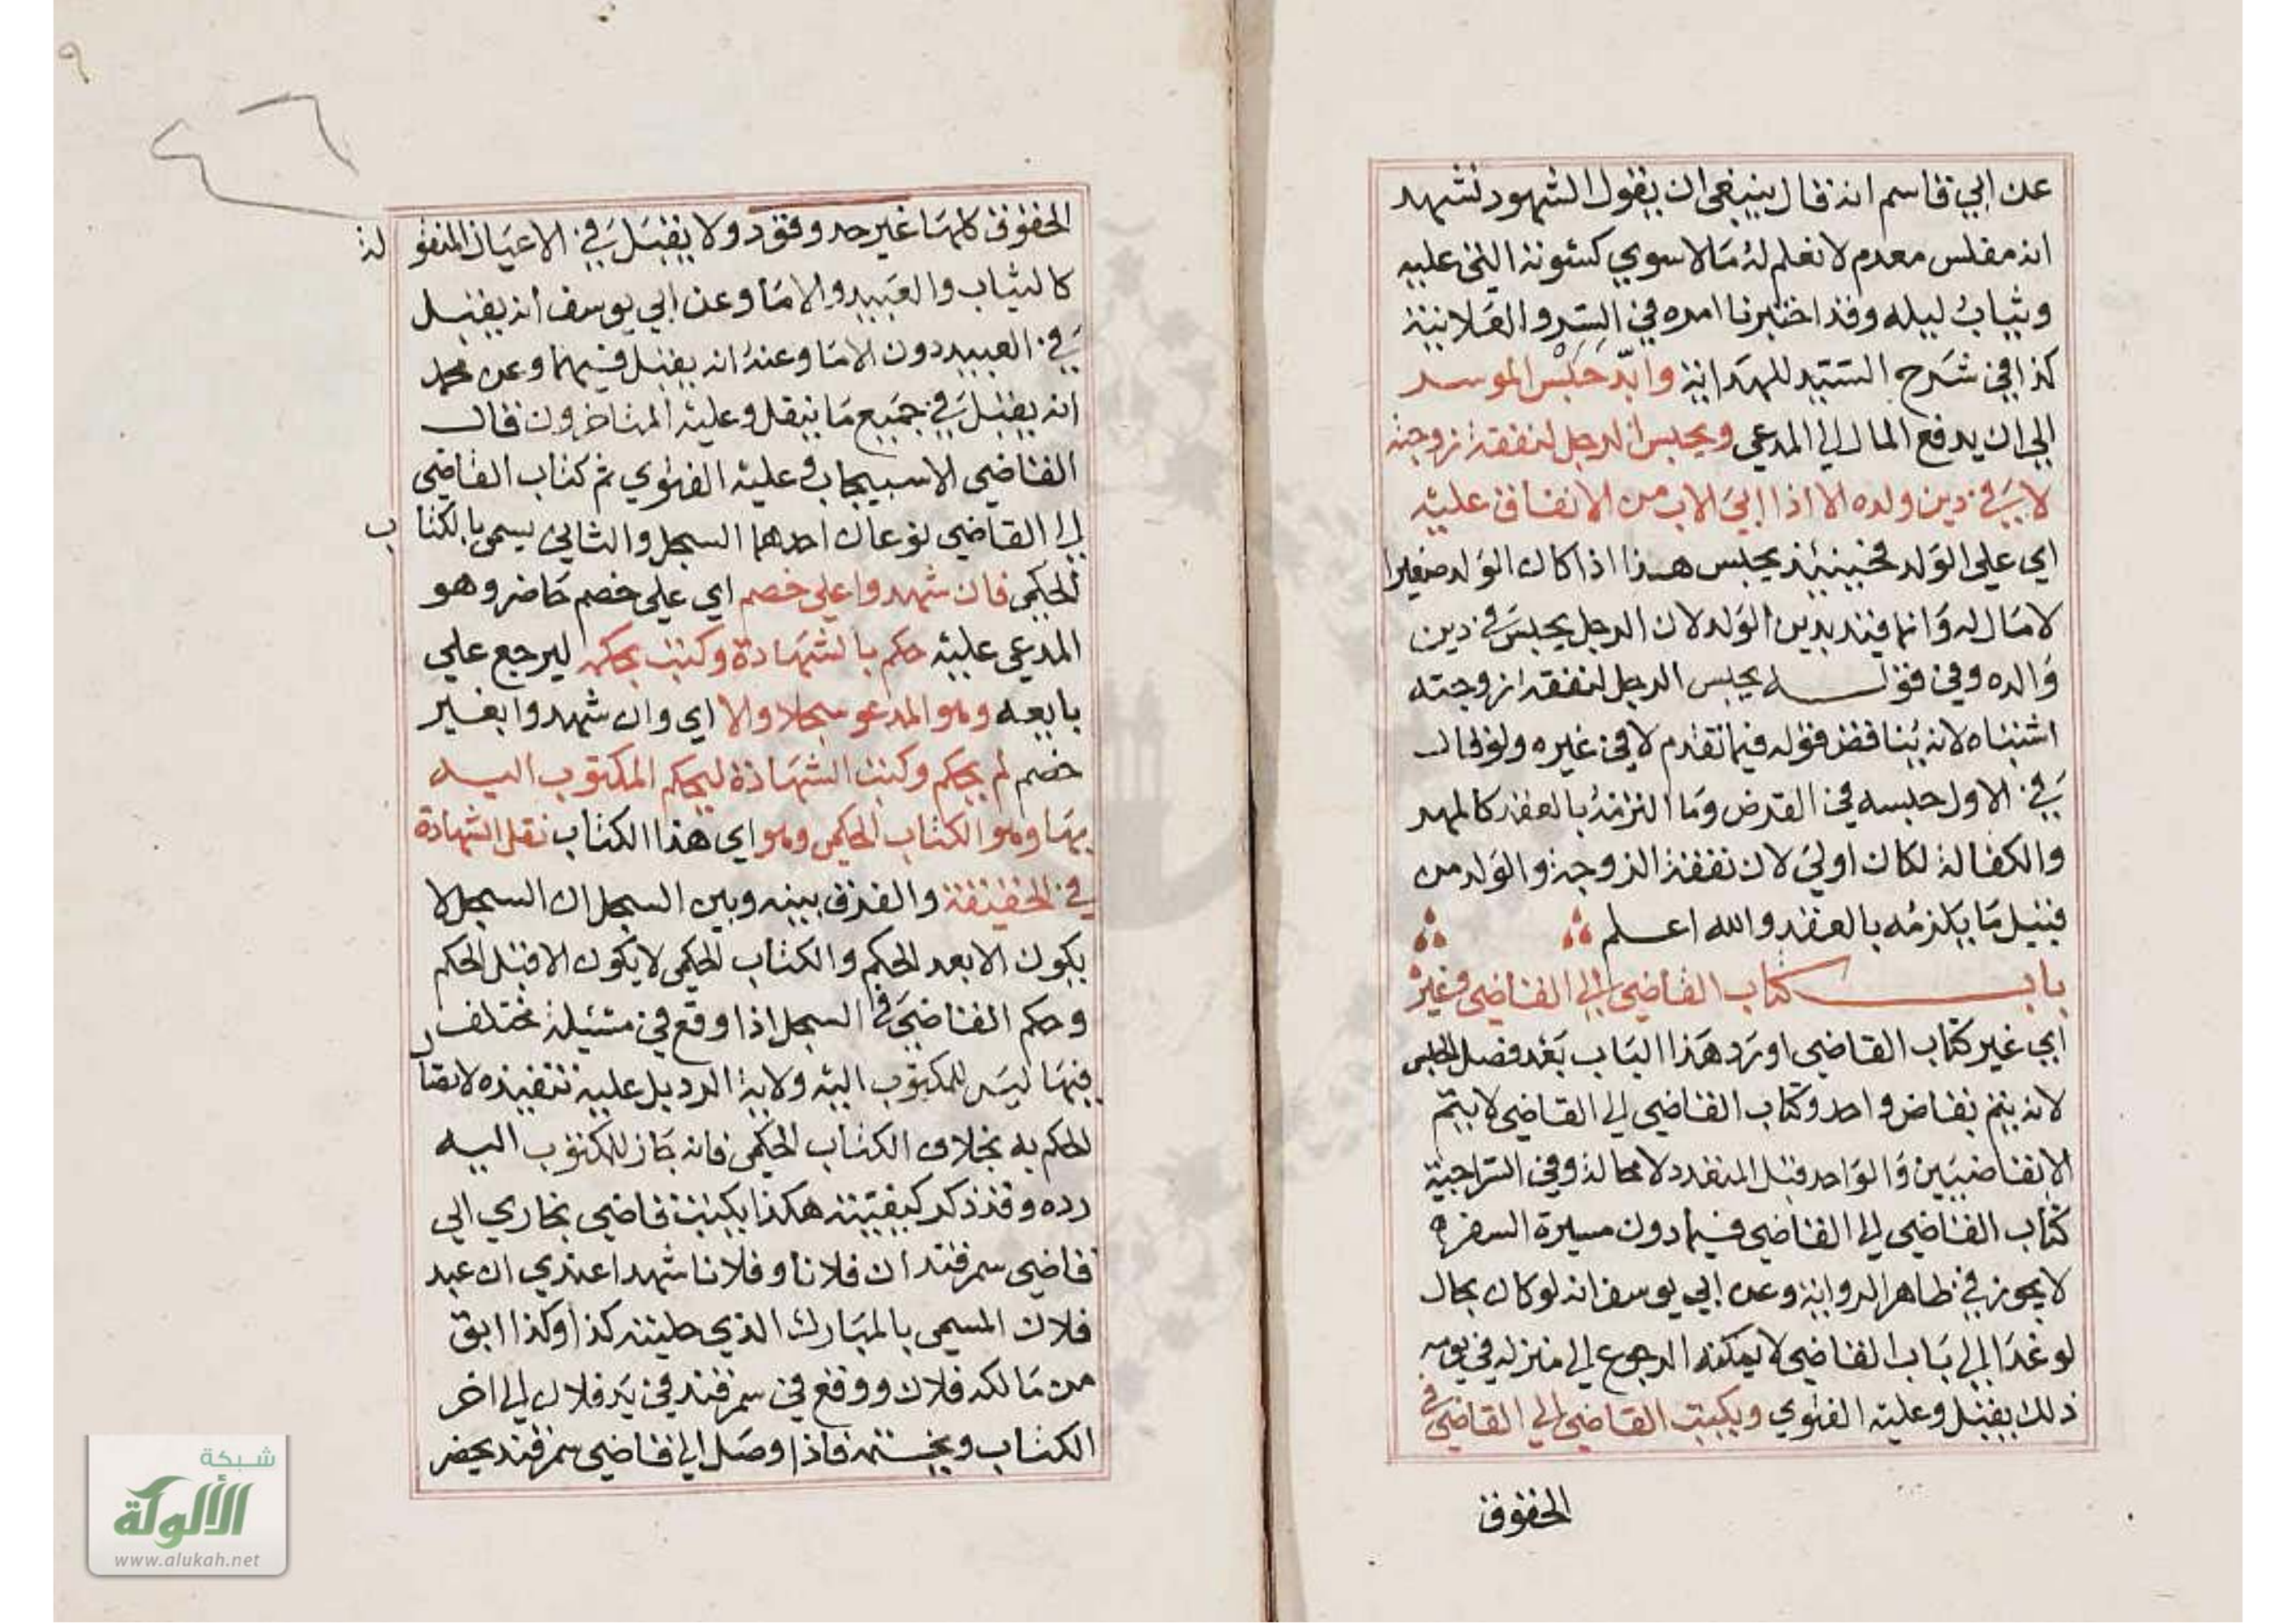 عن ابي قاسم انه قال ينبغي ان يقول الشهود نشهد
انه مفلس معدم لا نعلم له مالا سوي كسوته التي عليه
وثياب ليله وقد اختبرنا امره في السر والعلانية
كذا في شرح السيد للهداية وابد حبس الموسر
الى ان يدفع المال الى المدعي ويحبس الرجل لنفقة زوجته
لا في دين ولده الا اذا ابى الاب من الانفاق عليه
اي على الولد فحينئذ يحبس هذا اذا كان الولد صغيرا
لا مال له وانما قيد بدين الولد لان الرجل يحبس في دين
والده وفي قوله يحبس الرجل لنفقة زوجته
اشتباه لانه يناقض قوله فيما تقدم لا في غيره ولو قال
في الاول حبسه في القرض وما التزمه بالعقد كالمهر
والكفالة لكان اولى لان نفقة الزوجة والولد من
قبيل ما يلزمه بالعقد والله اعلم
باب كتاب القاضي الى القاضي وغيره
اي غير كتاب القاضي اورد هذا الباب بعد فصل الحبس
لانه يتم بقاض واحد وكتاب القاضي الى القاضي لا يتم
الا بقاضيين والواحد قبل المتعدد لا محالة وفي السراجية
كتاب القاضي الى القاضي فيما دون مسيرة السفر
لا يجوز في ظاهر الرواية وعن ابي يوسف انه لو كان بحال
لو غدا الى باب القاضي لا يمكنه الرجوع الى منزله في يومه
ذلك يقبل وعليه الفتوي ويكتب القاضي الى القاضي في
الحقوق
٩
٤٦
الحقوق كلها غير حد وقود ولا يقبل في الاعيان المنقولة
كالثياب والعبيد والاما وعن ابي يوسف انه يقبل
في العبيد دون الاما وعنه انه يقبل فيهما وعن محمد
انه يقبل في جميع ما ينقل وعليه المتاخرون قال
القاضي الاسبيجابي وعليه الفتوي ثم كتاب القاضي
الى القاضي نوعان احدهما السجل والثاني يسمى بالكتاب
الحكمي فان شهدوا على خصم اي على خصم حاضر وهو
المدعي عليه حكم بالشهادة وكتب بحكمه ليرجع علي
بايعه وهو المدعو سجلا والا اي وان شهدوا بغير
خصم لم يحكم وكتب الشهادة ليحكم المكتوب اليه
بها وهو الكتاب الحكمي وهو اي هذا الكتاب نقل الشهادة
في الحقيقة والفرق بينه وبين السجل ان السجل لا
يكون الا بعد الحكم والكتاب الحكمي لا يكون الا قبل الحكم
وحكم القاضي في السجل اذا وقع في مسئلة مختلف
فيها ليس للمكتوب اليه ولاية الرد بل عليه تنفيذه لاتصال
الحكم به بخلاف الكتاب الحكمي فانه جاز للمكتوب اليه
رده وقد ذكر كيفيته هكذا يكتب قاضي بخاري الي
قاضي سمرقند ان فلانا وفلانا شهدا عندي ان عبد
فلان المسمى بالمبارك الذي حليته كذا وكذا ابق
من مالكه فلان ووقع في سمرقند في يد فلان الى اخر
الكتاب ويختمه فاذا وصل الى قاضي سمرقند يحضر
شبكة
الألوكة
www.alukah.net